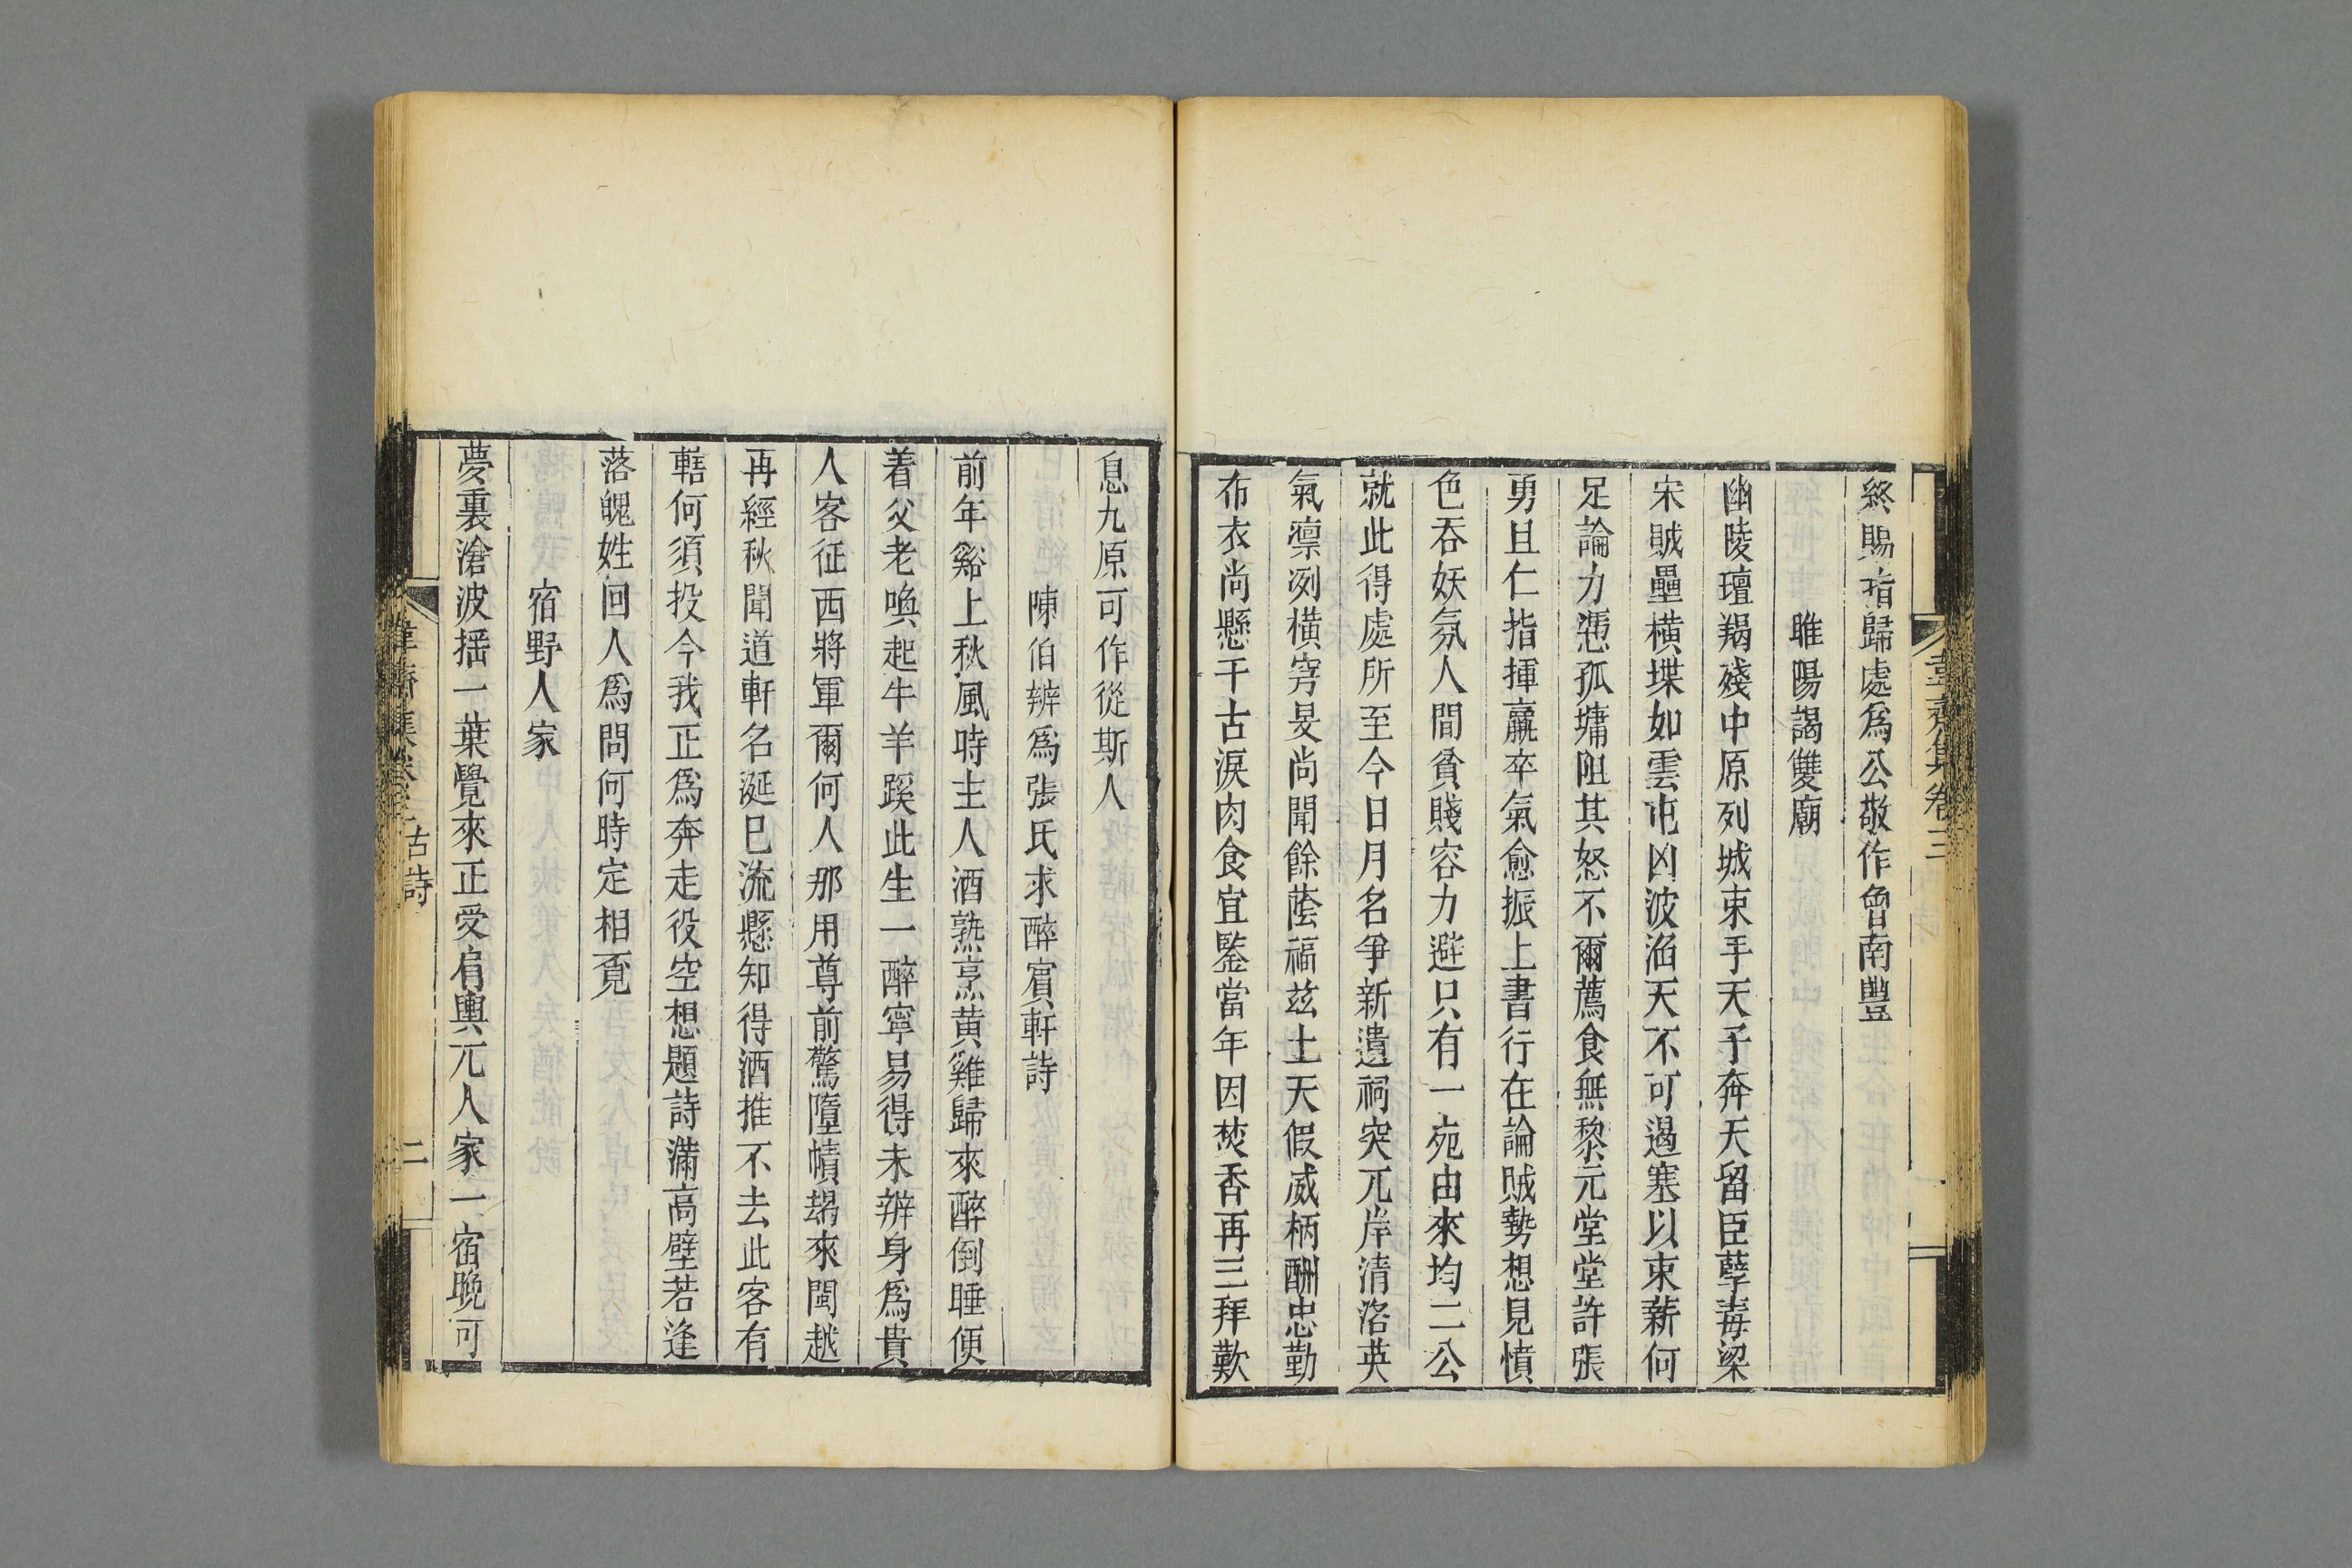 韋齋集卷三
終賜指歸處爲公敬作曾南豐
睢陽謁雙廟
幽陵羶羯殘中原列城束手天子奔天留臣孽毒梁
宋賊壘橫堞如雲屯凶波滔天不可遏塞以束薪何
足論力憑孤墉阻其怒不爾薦食無黎元堂堂許張
勇且仁指揮羸卒氣愈振上書行在論賊勢想見憤
色吞妖氛人間貧賤容力避只有一死由來均二公
就此得處所至今日月名爭新遺祠突兀岸清洛英
氣凛冽橫穹旻尚聞餘蔭福茲土天假威柄酬忠勤
布衣尚懸千古淚肉食宜鑒當年因焚香再三拜歎
息九原可作從斯人
陳伯辨爲張氏求醉賓軒詩
前年谿上秋風時主人酒熟烹黄雞歸來醉倒睡便
着父老喚起牛羊蹊此生一醉寧易得未辦身爲貴
人客征西將軍爾何人那用尊前驚墮幘朅來閩越
再經秋聞道軒名涎已流懸知得酒推不去此客有
轄何須投今我正爲奔走役空想題詩滿高壁若逢
落魄姓回人爲問何時定相覓
宿野人家
夢裏滄波揺一葉覺來正受肩輿兀人家一宿晚可
韋齋集卷三 古詩 二